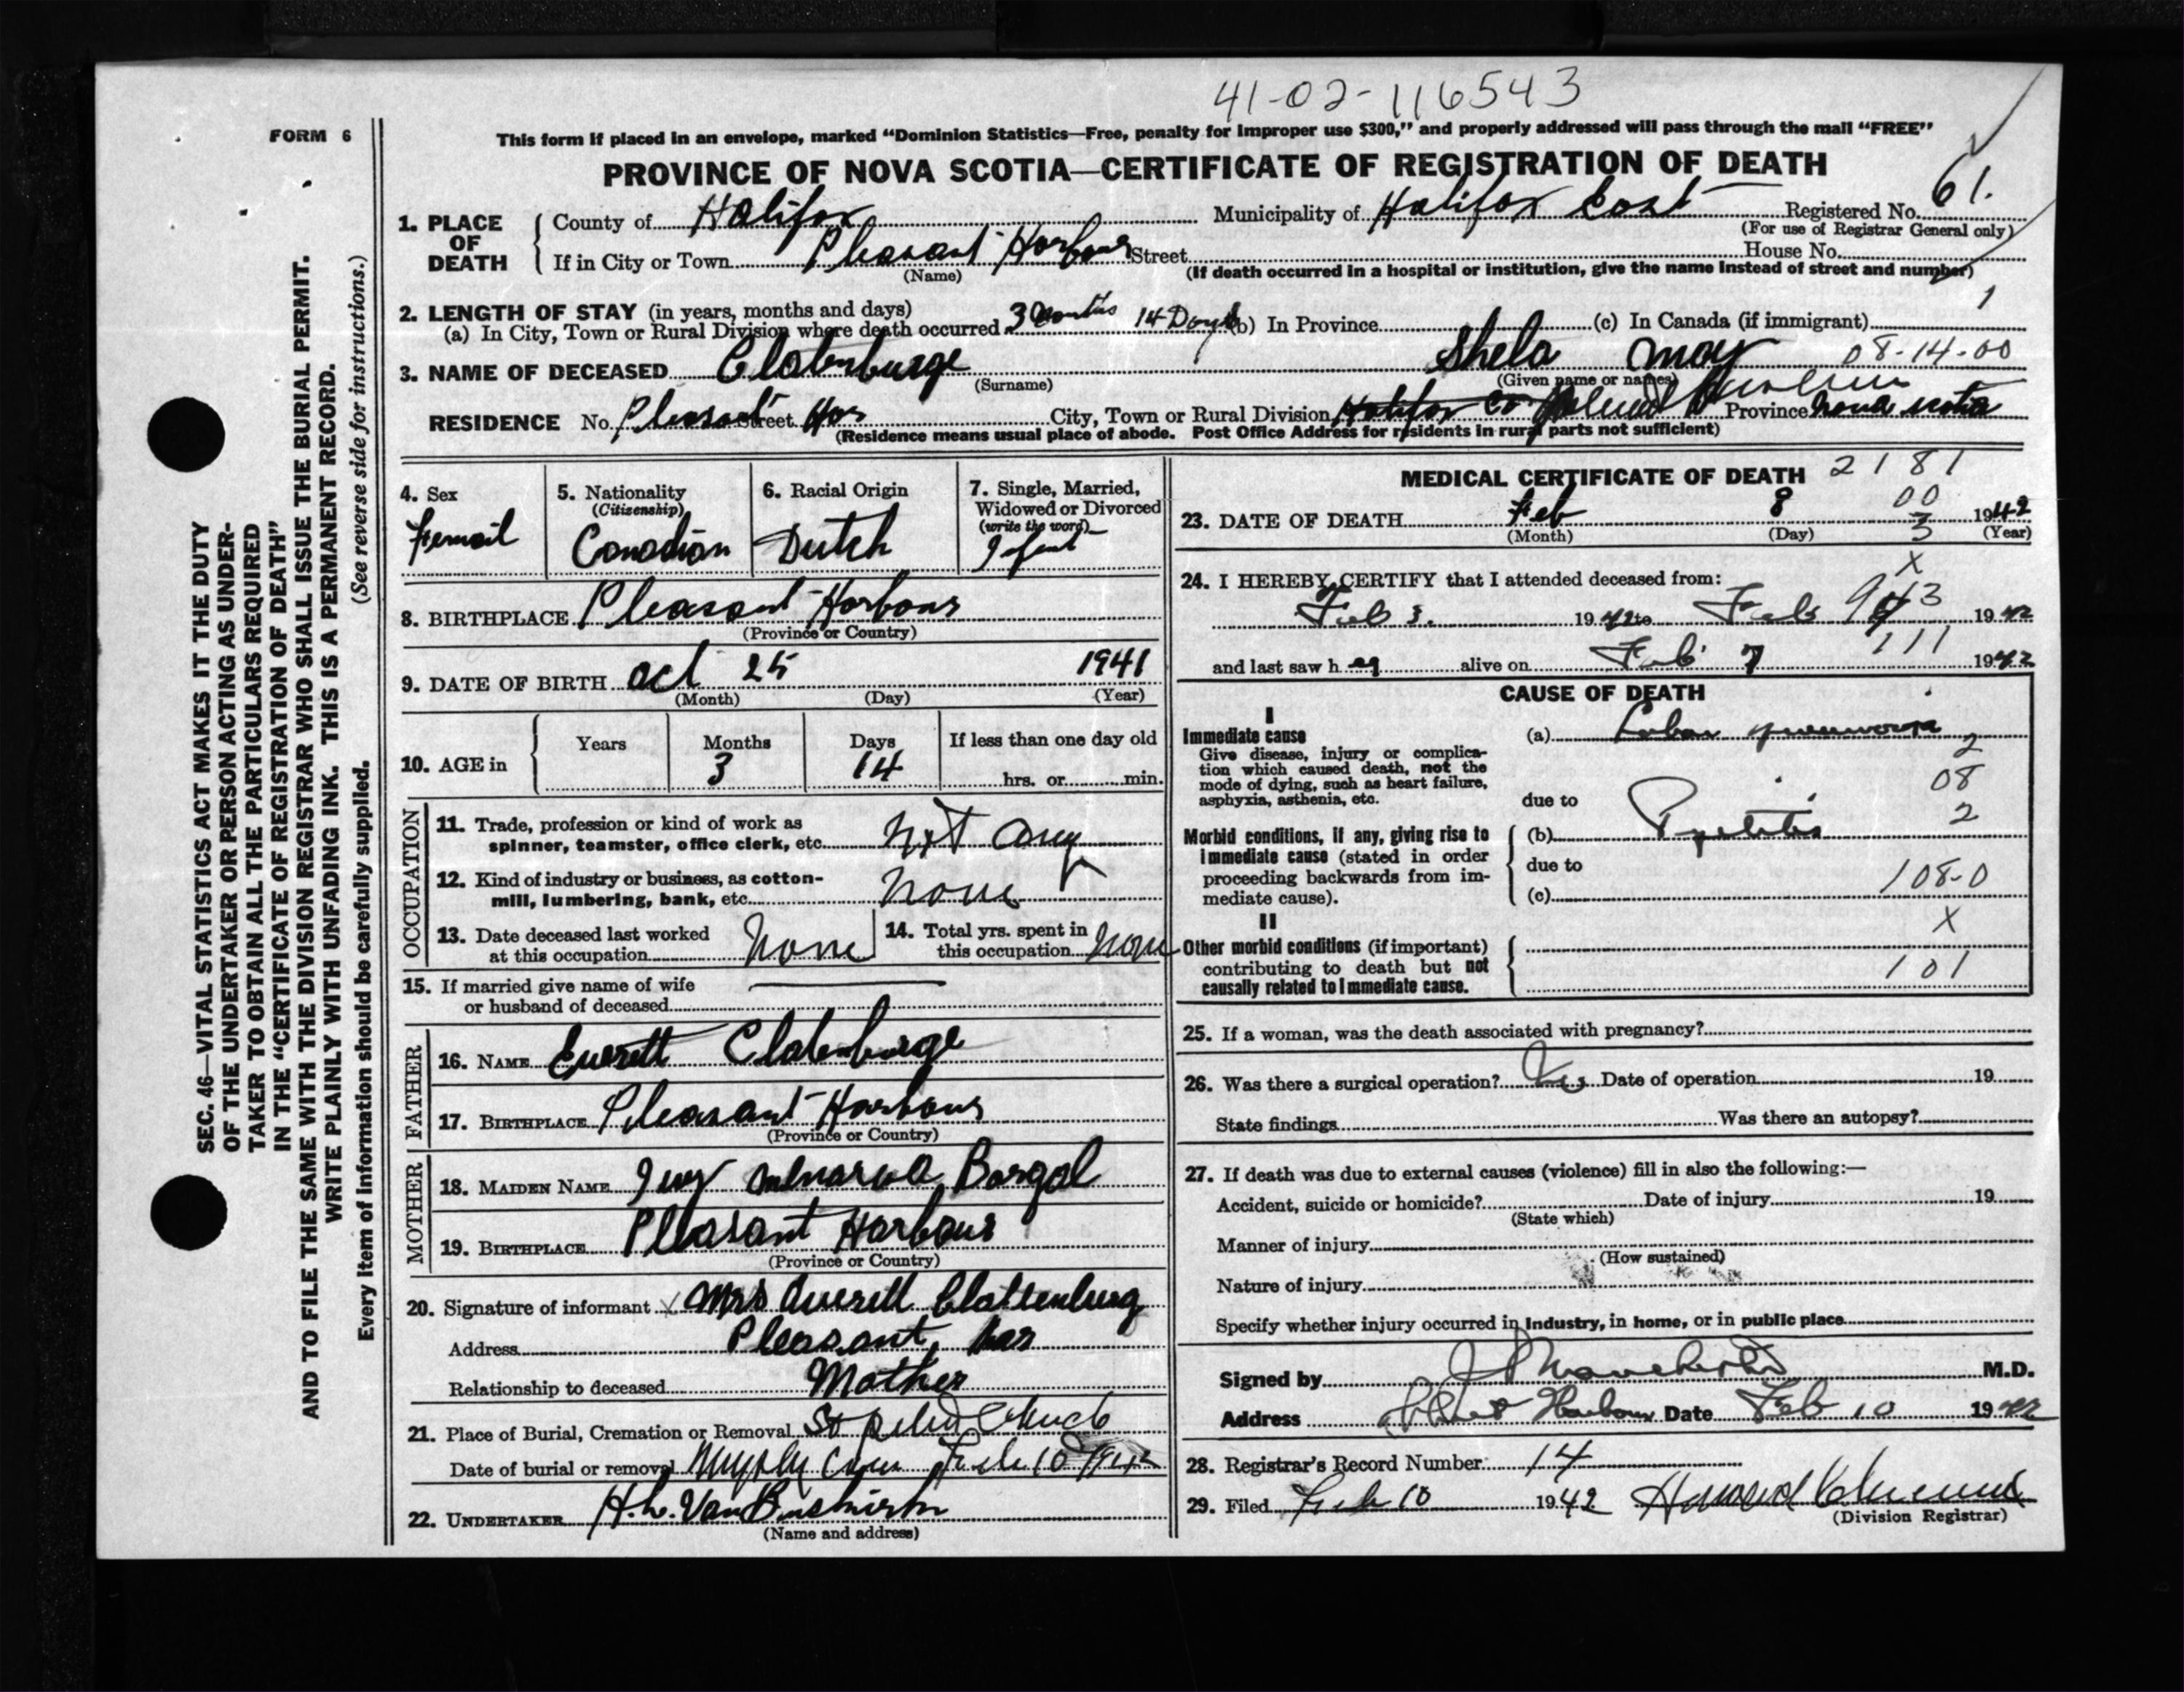 41-02-116543
FORM 6
This form if placed in an envelope, marked "Dominion Statistics—Free, penalty for improper use $300," and properly addressed will pass through the mail "FREE"
PROVINCE OF NOVA SCOTIA—CERTIFICATE OF REGISTRATION OF DEATH
1. PLACE OF DEATH County of Halifax Municipality of Halifax East Registered No. 61.
(For use of Registrar General only)
If in City or Town Pleasant Harbour Street House No.
(Name) (If death occurred in a hospital or institution, give the name instead of street and number)
1
2. LENGTH OF STAY (in years, months and days)
(a) In City, Town or Rural Division where death occurred 3 Months 14 Days (b) In Province (c) In Canada (if immigrant)
3. NAME OF DECEASED Clatenburge Shela May 08-14-00
(Surname) (Given name or names)
RESIDENCE No. Pleasant Street Har City, Town or Rural Division Halifax Co Province Nova Scotia
(Residence means usual place of abode. Post Office Address for residents in rural parts not sufficient)
SEC. 46—VITAL STATISTICS ACT MAKES IT THE DUTY
OF THE UNDERTAKER OR PERSON ACTING AS UNDER-
TAKER TO OBTAIN ALL THE PARTICULARS REQUIRED
IN THE "CERTIFICATE OF REGISTRATION OF DEATH"
AND TO FILE THE SAME WITH THE DIVISION REGISTRAR WHO SHALL ISSUE THE BURIAL PERMIT.
WRITE PLAINLY WITH UNFADING INK. THIS IS A PERMANENT RECORD.
Every item of information should be carefully supplied. (See reverse side for instructions.)
4. Sex Femail
5. Nationality
(Citizenship)
Canadian
6. Racial Origin
Dutch
7. Single, Married,
Widowed or Divorced
(write the word)
Ifent
8. BIRTHPLACE Pleasant Harbour
(Province or Country)
9. DATE OF BIRTH Oct 25 1941
(Month) (Day) (Year)
10. AGE in Years Months Days If less than one day old
3 14 hrs. or min.
OCCUPATION
11. Trade, profession or kind of work as
spinner, teamster, office clerk, etc. Not any
12. Kind of industry or business, as cotton-
mill, lumbering, bank, etc. None
13. Date deceased last worked
at this occupation None
14. Total yrs. spent in
this occupation None
15. If married give name of wife
or husband of deceased
FATHER
16. NAME Everett Clatenburge
17. BIRTHPLACE Pleasant Harbour
(Province or Country)
MOTHER
18. MAIDEN NAME Ivy Menarva Borgal
19. BIRTHPLACE Pleasant Harbour
(Province or Country)
20. Signature of informant x Mrs Averett Clattenburg
Address Pleasant, Har
Relationship to deceased Mother
21. Place of Burial, Cremation or Removal St Church
Date of burial or removal Murphy Cove Feb 10 1942
22. UNDERTAKER H. L. VanBuskirk
(Name and address)
MEDICAL CERTIFICATE OF DEATH 2181
00
23. DATE OF DEATH Feb 8 1942
(Month) (Day) (Year)
3
x
24. I HEREBY CERTIFY that I attended deceased from:
Feb 3. 1942 to Feb 1942
111
and last saw h er alive on Feb 7 1942
CAUSE OF DEATH
I
Immediate cause
Give disease, injury or complica-
tion which caused death, not the
mode of dying, such as heart failure,
asphyxia, asthenia, etc.
(a) Lobar pneumonia
2
08
due to
2
Morbid conditions, if any, giving rise to
immediate cause (stated in order
proceeding backwards from im-
mediate cause).
(b) Pyelitis
due to
108-0
(c)
II
x
Other morbid conditions (if important)
contributing to death but not
causally related to immediate cause.
101
25. If a woman, was the death associated with pregnancy?
26. Was there a surgical operation? Date of operation 19
State findings Was there an autopsy?
27. If death was due to external causes (violence) fill in also the following:—
Accident, suicide or homicide? Date of injury 19
(State which)
Manner of injury
(How sustained)
Nature of injury
Specify whether injury occurred in industry, in home, or in public place
Signed by M.D.
Address Harbour Date Feb 10 1942
28. Registrar's Record Number 14
29. Filed Feb 10 1942 Howard
(Division Registrar)